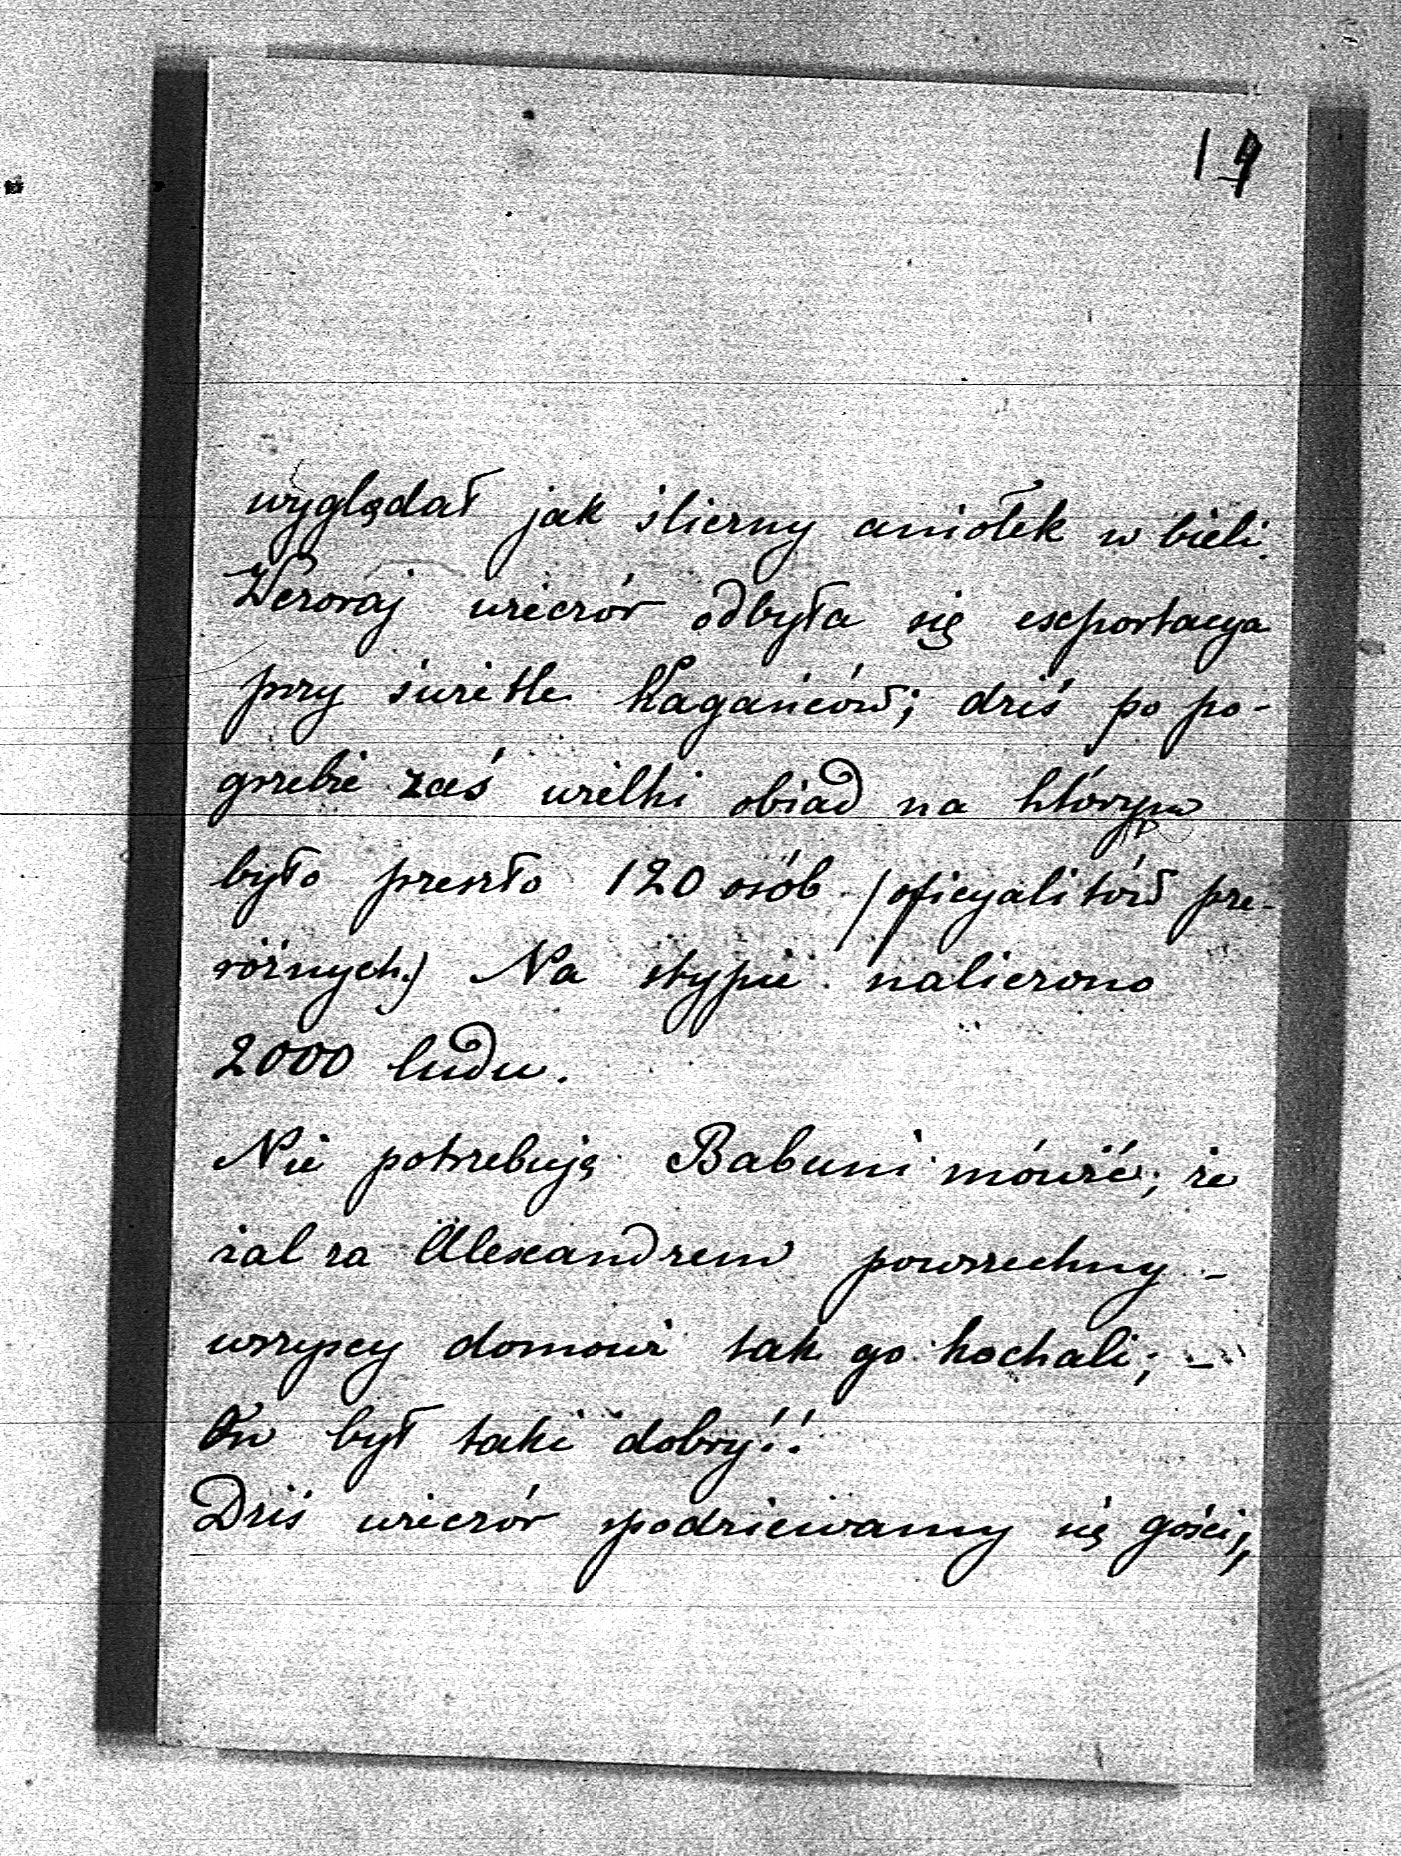 wyglądał jak śliczny aniołek w bieli.
Wczoraj wieczór odbyła się exportacya
przy świetle kagańców; dziś po po-
grzebie zaś wielki obiad na którym
było przeszło 120 osób /oficyalistów prze-
różnych.) Na stypie naliczono
2000 ludu.
Nie potrzebuję Babuni mówić, że
żal za Alexandrem powszechny -
wszyscy domowi tak go kochali; -
On był taki dobry!!
Dziś wieczór spodziewamy się gości,